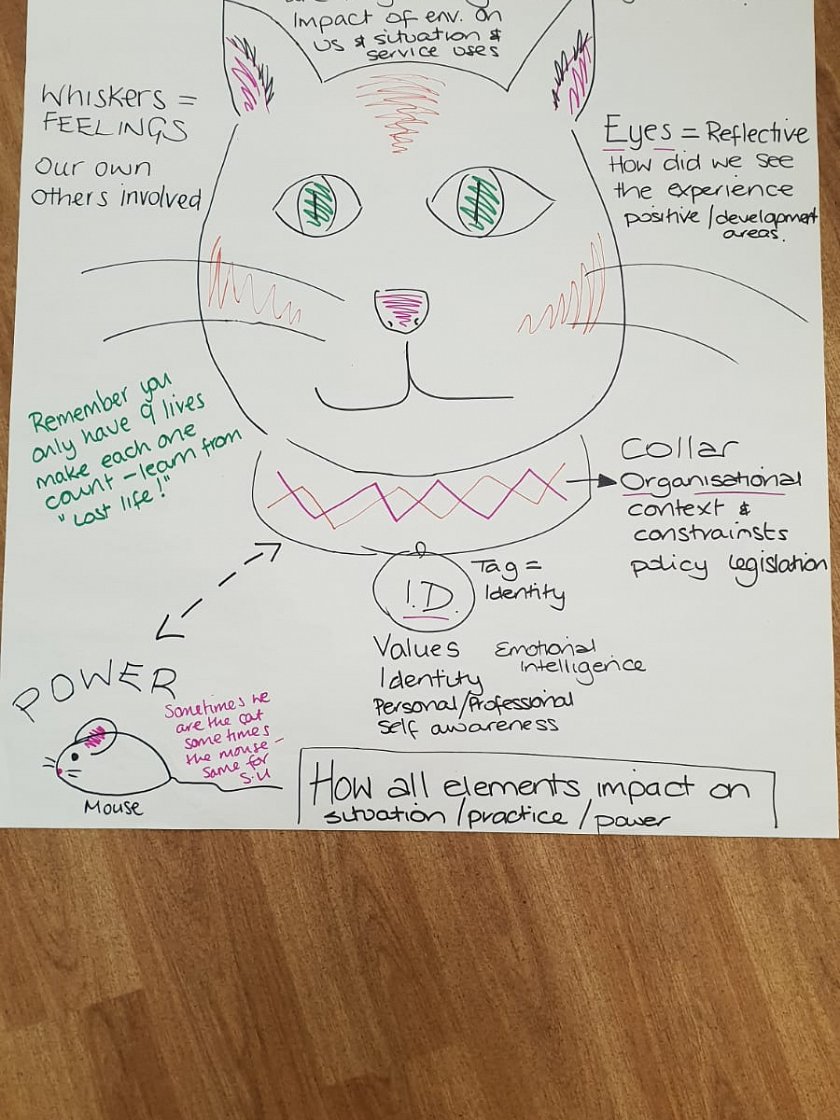 Impact of env. on
us & situation &
service uses
Whiskers =
FEELINGS
Our own
Others involved
Eyes = Reflective
How did we see
the experience
positive/development
areas.
Remember you
only have 9 lives
make each one
count - learn from
"Lost life!"
Collar
Organisational
context &
constrainsts
policy legislation
I.D.
Tag =
Identity
Values
Emotional
Intelligence
Identity
Personal/Professional
Self awareness
POWER
Sometimes we
are the cat
some times
the mouse -
same for
S.U
Mouse
How all elements impact on
situation/practice/power